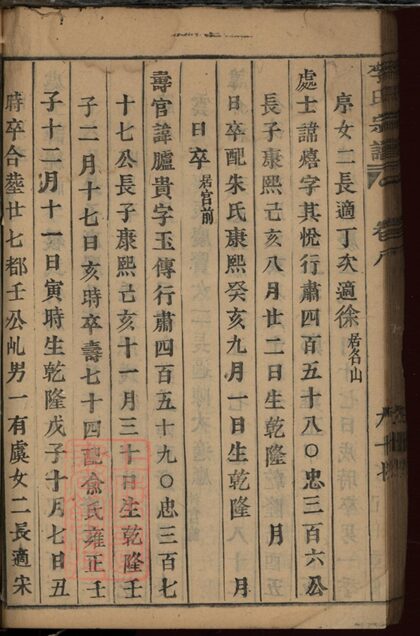 李氏宗譜
卷八
九十
序女二長適丁次適徐居名山
處士諱熺字其悅行肅四百五十八〇忠三百六公
長子康熙己亥八月廿二日生乾隆 月
日卒配朱氏康熙癸亥九月一日生乾隆 月
日卒居官前
壽官諱臚貴字玉傳行肅四百五十九〇忠三百七
十七公長子康熙己亥十一月三十日生乾隆壬
子二月十七日亥時卒壽七十四配俞氏雍正壬
子十二月十一日寅時生乾隆戊子十月七日丑
時卒合塟廿七都壬公乢男一有虞女二長適宋